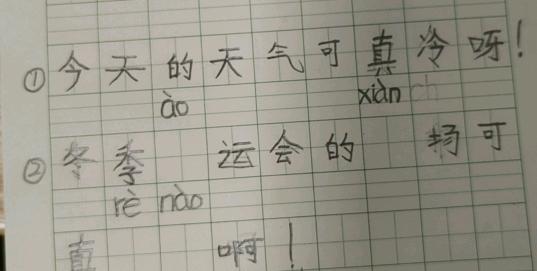 ①今天的天气可真冷呀！
ào xiàn ch
②冬季 运会的 扬可
rè nào
真 啊！